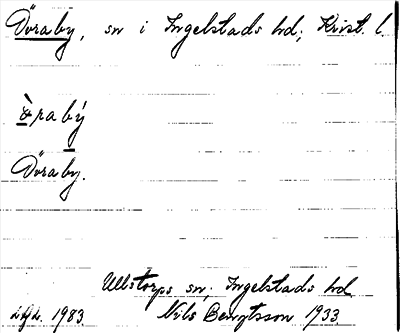 Öraby, sn i Ingelstads hd; Krist. l.
ò̱rabý
Öraby.
Ullstorps sn; Ingelstads hd
1983. Nils Bengtsson 1933